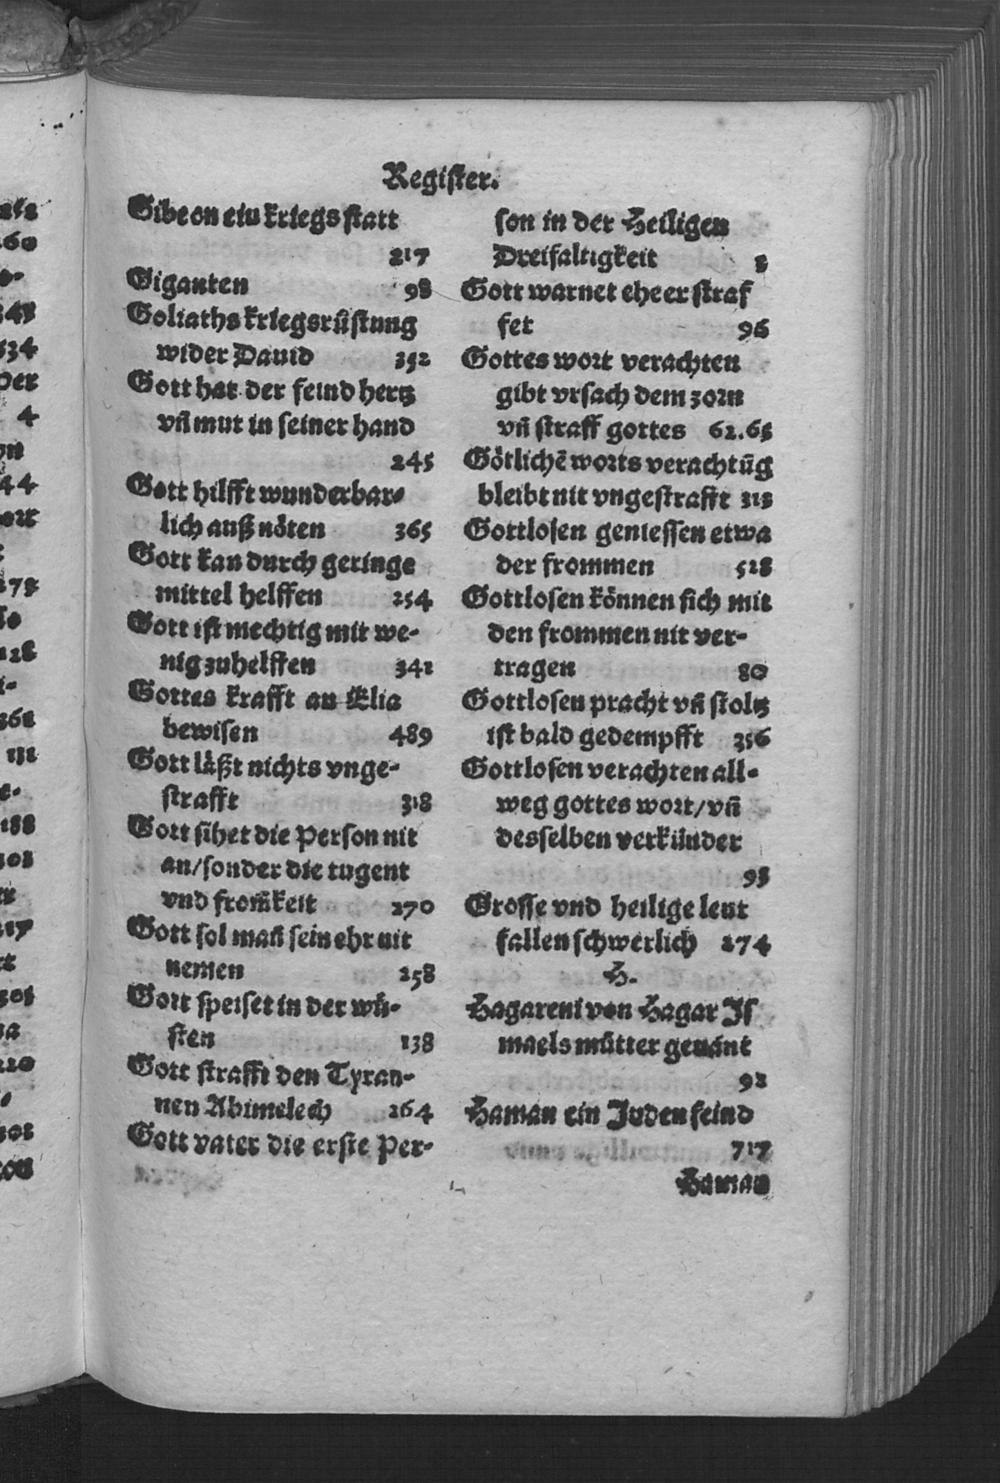 Register.
Gibeon ein kriegs statt
217
Giganten 98
Goliaths kriegsrüstung
wider Dauid 352
Gott hat der feind hertz
vñ mut in seiner hand
245
Gott hilfft wunderbar-
lich auß nöten 365
Gott kan durch geringe
mittel helffen 254
Gott ist mechtig mit we-
nig zuhelffen 342
Gottes krafft an Elia
bewisen 489
Gott läßt nichts vnge-
strafft 318
Gott sihet die Person nit
an/sonder die tugent
vnd from̃keit 270
Gott sol mañ sein ehr nit
nemen 258
Gott speiset in der wü-
sten 138
Gott strafft den Tyran-
nen Abimelech 264
Gott vater die erste Per-
son in der Heiligen
Dreifaltigkeit
Gott warnet ehe er straf
fet 96
Gottes wort verachten
gibt vrsach dem zorn
vñ straff gottes 62.65
Götlichẽ worts verachtũg
bleibt nit vngestrafft 313
Gottlosen geniessen etwa
der frommen 528
Gottlosen können sich mit
den frommen nit ver-
tragen 80
Gottlosen pracht vñ stoltz
ist bald gedempfft 356
Gottlosen verachten all-
weg gottes wort/vñ
desselben verkünder
93
Grosse vnd heilige leut
fallen schwerlich 274
H.
Hagareni von Hagar Is
maels můtter genant
92
Haman ein Juden feind
717
Haman